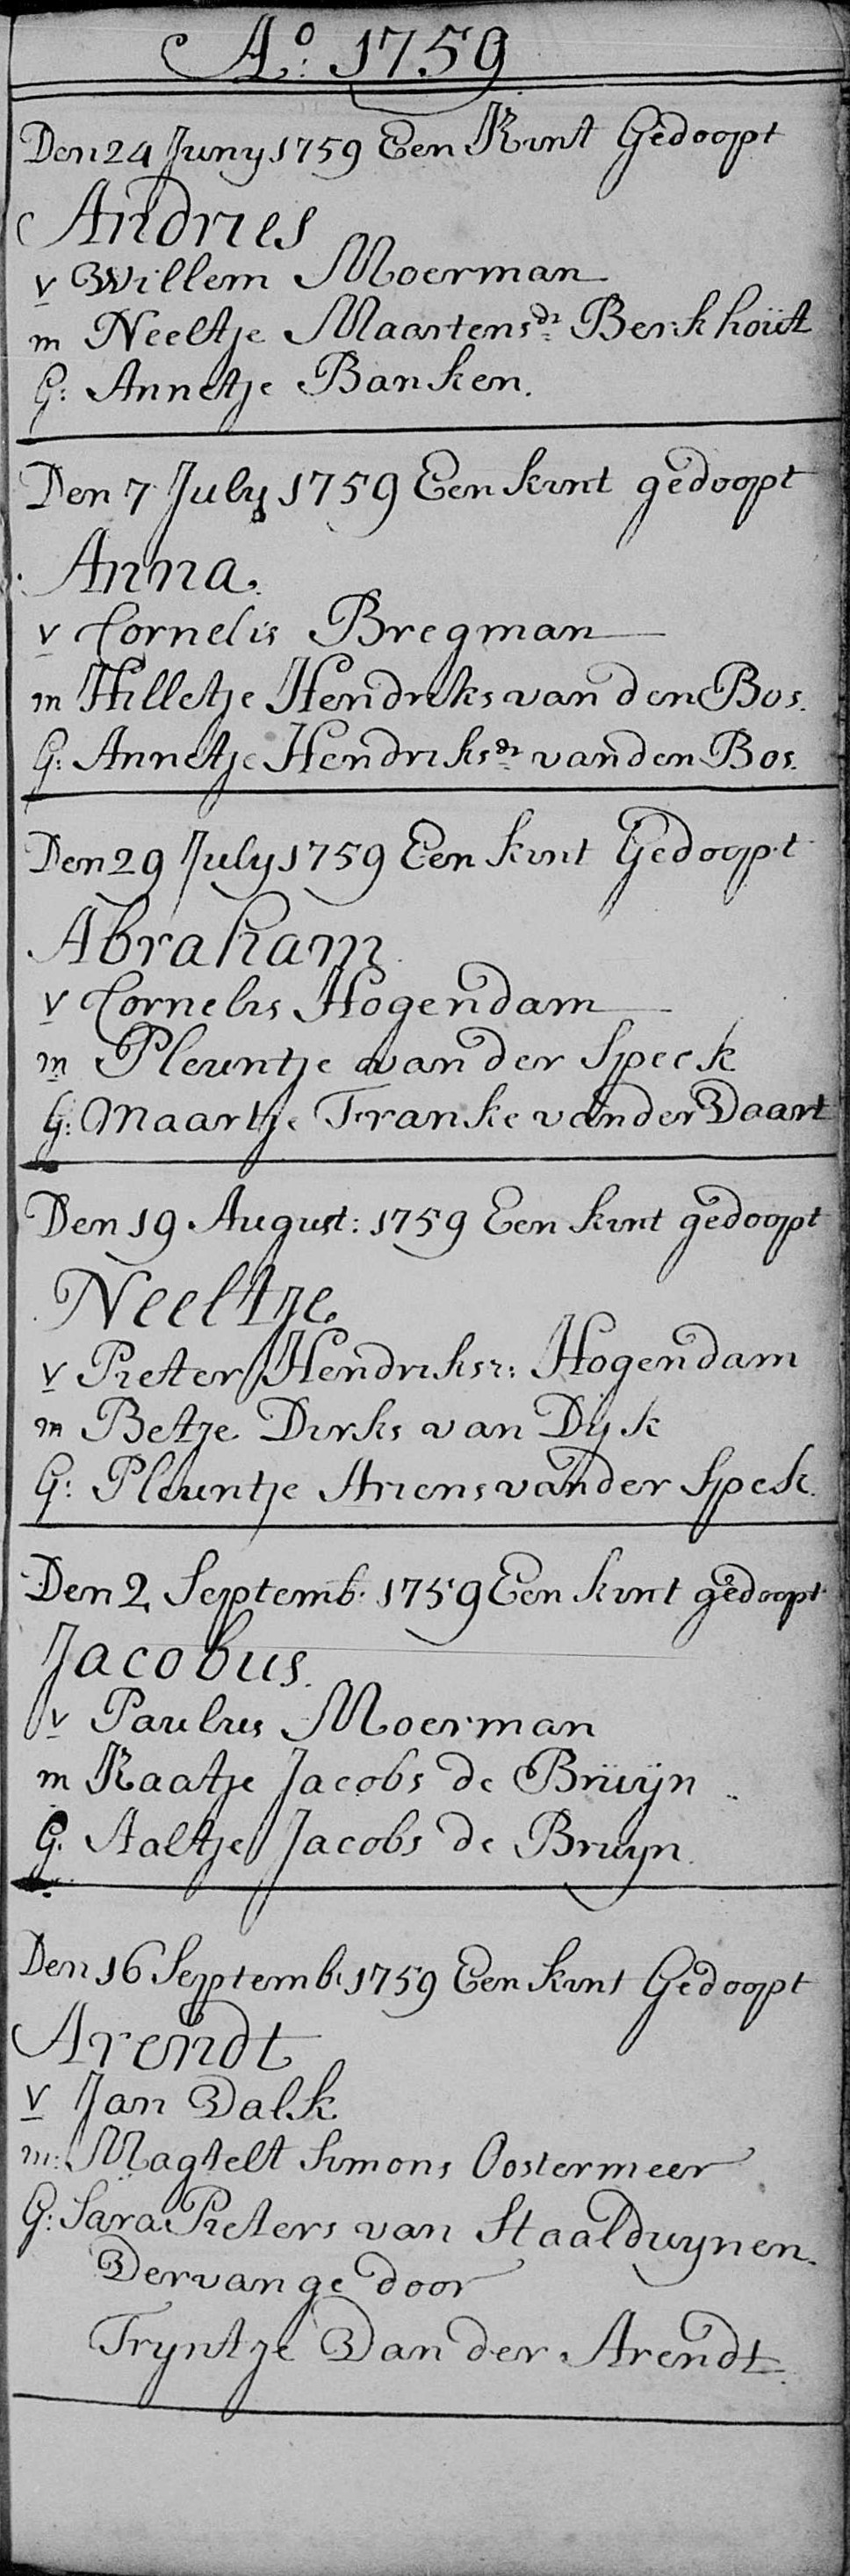 Ao: 1759
Den 24 Juny 1759 Een Kint Gedoopt
Andries
v Willem Moerman
m Neeltje Maartensdr Berkhoüt
G: Annetje Banken.
Den 7 July 1759 Een kint gedoopt
Anna.
v Cornelis Bregman
m Hilletje Hendriks van den Bos.
G: Annetje Hendriksdr van den Bos.
Den 29 July 1759 Een kint Gedoopt
Abraham
v Cornelis Hogendam
m Pleuntje van der Speck
G: Maartje Franke van der Vaart
Den 19 August: 1759 Een kint gedoopt
Neeltje
v Pieter Hendriksz: Hogendam
m Betje Dirks van Dijk
G: Pleuntje Ariens van der Spek.
Den 2 Septemb: 1759 Een kint gedoopt
Jacobus.
v Paulus Moerman
m Kaatje Jacobs de Brüijn
G. Aaltje Jacobs de Bruyn.
Den 16 Septemb: 1759 Een kint Gedoopt
Arendt
v Jan Valk
m: Magtelt Simons Oostermeer
G: Sara Pieters van Staalduynen.
Vervange door
Tryntje Van der Arendt.